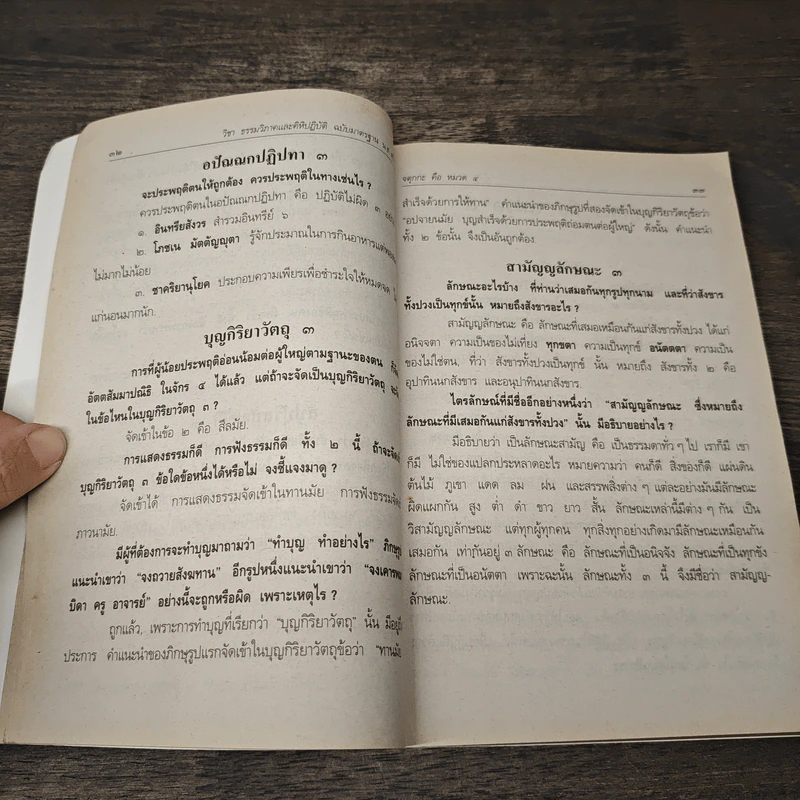 ๓๒
วิชา ธรรมวิภาคและคิหิปฏิบัติ ฉบับมาตรฐาน
อปัณณกปฏิปทา ๓
จะประพฤติตนให้ถูกต้อง ควรประพฤติในทางเช่นไร ?
ควรประพฤติตนในอปัณณกปฏิปทา คือ ปฏิบัติไม่ผิด ๓
๑. อินทรียสังวร สำรวมอินทรีย์ ๖
๒. โภชเน มัตตัญญุตา รู้จักประมาณในการกินอาหารแต่
ไม่มากไม่น้อย
๓. ชาคริยานุโยค ประกอบความเพียรเพื่อชำระใจให้หมดจด
แก่นอนมากนัก.
บุญกิริยาวัตถุ ๓
การที่ผู้น้อยประพฤติอ่อนน้อมต่อผู้ใหญ่ตามฐานะของตน
อัตตสัมมาปณิธิ ในจักร ๔ ได้แล้ว แต่ถ้าจะจัดเป็นบุญกิริยาวัตถุ
ในข้อไหนในบุญกิริยาวัตถุ ๓ ?
จัดเข้าในข้อ ๒ คือ สีลมัย.
การแสดงธรรมก็ดี การฟังธรรมก็ดี ทั้ง ๒ นี้ ถ้าจะ
บุญกิริยาวัตถุ ๓ ข้อใดข้อหนึ่งได้หรือไม่ จงชี้แจงมาดู ?
จัดเข้าได้ การแสดงธรรมจัดเข้าในทานมัย การฟังธรรม
ภาวนามัย.
มีผู้ที่ต้องการจะทำบุญมาถามว่า “ทำบุญ ทำอย่างไร”
แนะนำเขาว่า “จงถวายสังฆทาน” อีกรูปหนึ่งแนะนำเขาว่า
บิดา ครู อาจารย์” อย่างนี้จะถูกหรือผิด เพราะเหตุไร ?
ถูกแล้ว, เพราะการทำบุญที่เรียกว่า “บุญกิริยาวัตถุ” นั้น
ประการ คำแนะนำของภิกษุรูปแรกจัดเข้าในบุญกิริยาวัตถุข้อว่า
จตุกกะ คือ หมวด ๔
๓๓
สำเร็จด้วยการให้ทาน” คำแนะนำของภิกษุรูปที่สองจัดเข้าในบุญกิริยาวัตถุข้อว่า
“อปจายนมัย บุญสำเร็จด้วยการประพฤติถ่อมตนต่อผู้ใหญ่” ดังนั้น คำแนะนำ
ทั้ง ๒ ข้อนั้น จึงเป็นอันถูกต้อง.
สามัญญลักษณะ ๓
ลักษณะอะไรบ้าง ที่ท่านว่าเสมอกันทุกรูปทุกนาม และที่ว่าสังขาร
ทั้งปวงเป็นทุกข์นั้น หมายถึงสังขารอะไร ?
สามัญญลักษณะ คือ ลักษณะที่เสมอเหมือนกันแก่สังขารทั้งปวง ได้แก่
อนิจจตา ความเป็นของไม่เที่ยง ทุกขตา ความเป็นทุกข์ อนัตตตา ความเป็น
ของไม่ใช่ตน, ที่ว่า สังขารทั้งปวงเป็นทุกข์ นั้น หมายถึง สังขารทั้ง ๒ คือ
อุปาทินนกสังขาร และอนุปาทินนกสังขาร.
ไตรลักษณ์ที่มีชื่ออีกอย่างหนึ่งว่า “สามัญญลักษณะ ซึ่งหมายถึง
ลักษณะที่มีเสมอกันแก่สังขารทั้งปวง” นั้น มีอธิบายอย่างไร ?
มีอธิบายว่า เป็นลักษณะสามัญ คือ เป็นธรรมดาทั่ว ๆ ไป เราก็มี เขา
ก็มี ไม่ใช่ของแปลกประหลาดอะไร หมายความว่า คนก็ดี สิ่งของก็ดี แผ่นดิน
ต้นไม้ ภูเขา แดด ลม ฝน และสรรพสิ่งต่าง ๆ แต่ละอย่างมันมีลักษณะ
ผิดแผกกัน สูง ต่ำ ดำ ขาว ยาว สั้น ลักษณะเหล่านี้มีต่าง ๆ กัน เป็น
วิสามัญญลักษณะ แต่ทุกผู้ทุกคน ทุกสิ่งทุกอย่างเกิดมามีลักษณะเหมือนกัน
เสมอกัน เท่ากันอยู่ ๓ ลักษณะ คือ ลักษณะที่เป็นอนิจจัง ลักษณะที่เป็นทุกขัง
ลักษณะที่เป็นอนัตตา เพราะฉะนั้น ลักษณะทั้ง ๓ นี้ จึงมีชื่อว่า สามัญญ-
ลักษณะ.